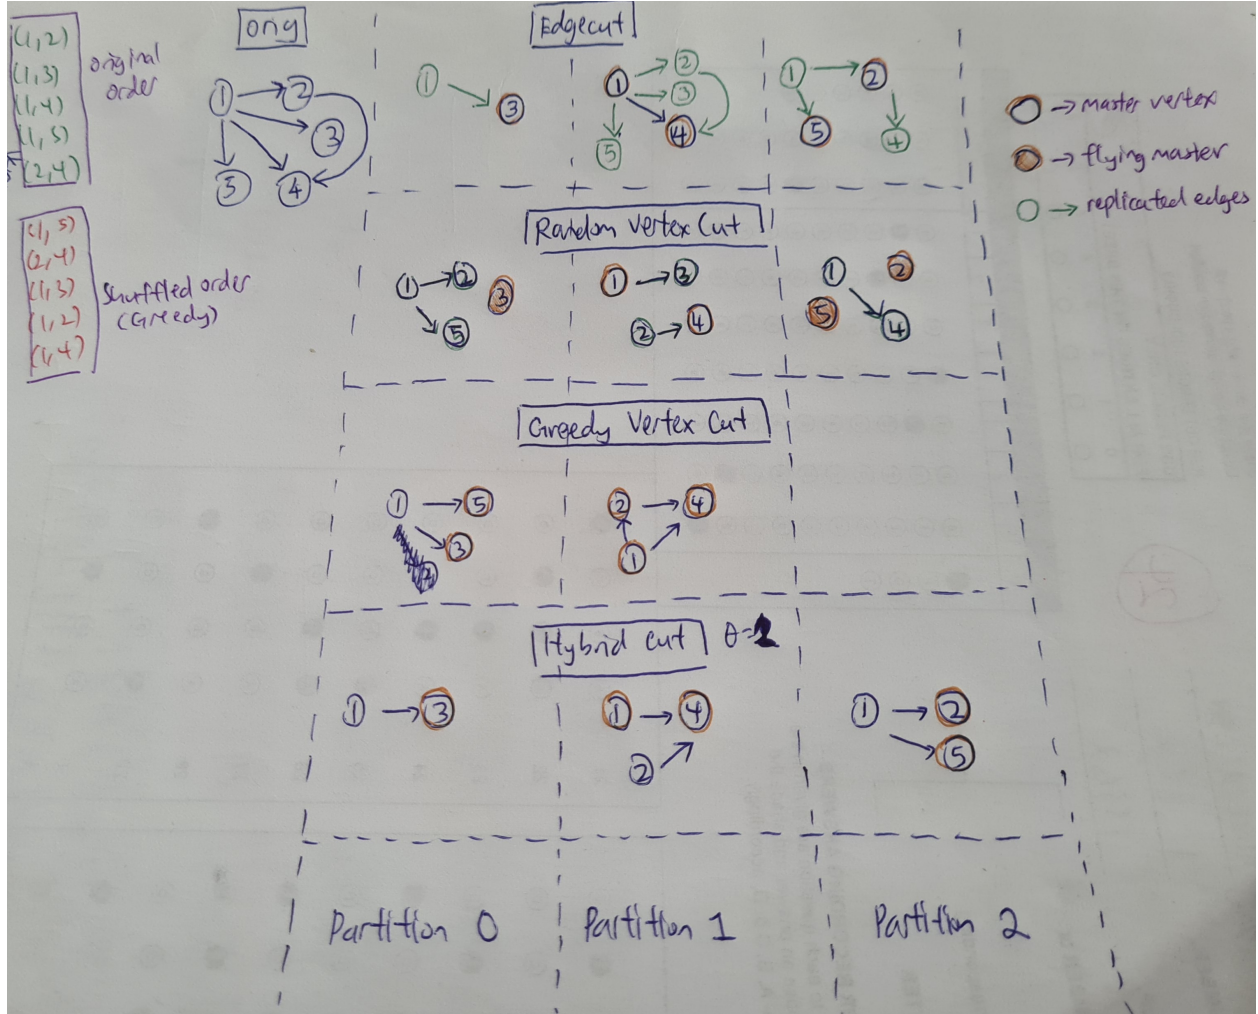 (1,2)
(1,3)
(1,4)
(1,5)
(2,4)
original
order
(1,5)
(2,4)
(1,3)
(1,2)
(1,4)
Shuffled order
(Greedy)
orig
1
2
3
5
4
Edgecut
1
3
1
2
3
4
5
1
2
5
4
→ master vertex
→ flying master
→ replicated edges
Random Vertex Cut
1
2
3
5
1
3
2
4
1
2
5
4
Greedy Vertex Cut
1
5
3
2
4
1
Hybrid cut
1
3
1
4
2
1
2
5
Partition 0
Partition 1
Partition 2